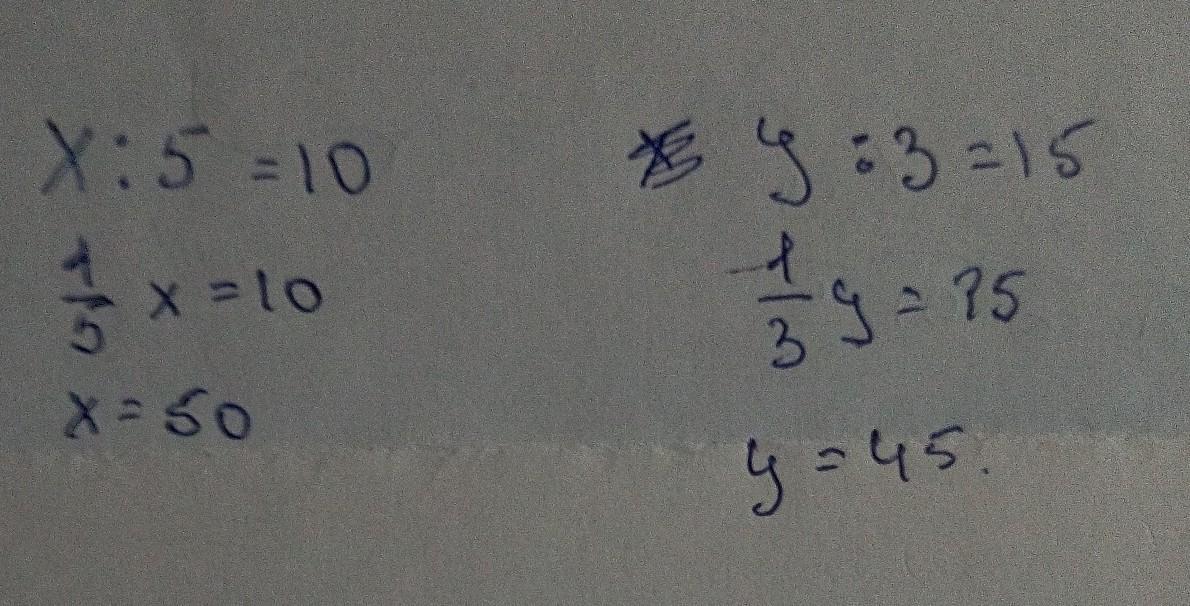 x : 5 = 10
1/5 x = 10
x = 50
y : 3 = 15
1/3 y = 15
y = 45.